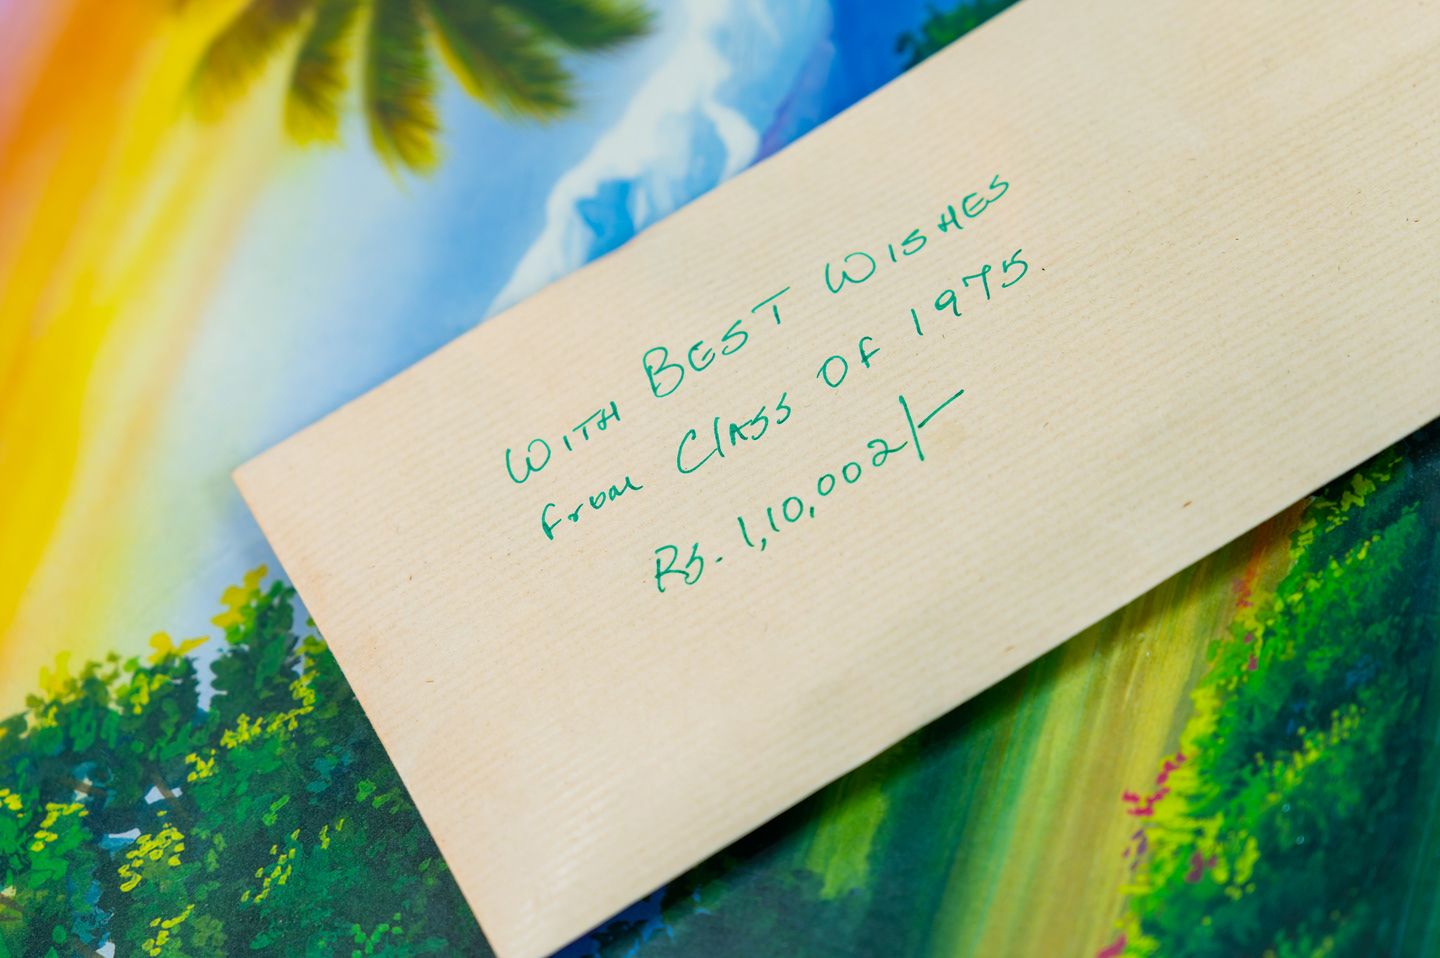 WITH BEST WISHES
from Class Of 1975.
Rs. 1,10,002/-